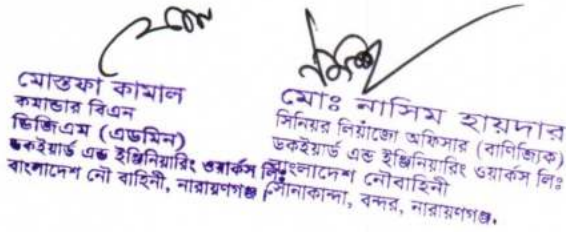 মোস্তফা কামাল
কমান্ডার বিএন
ডিজিএম (এডমিন)
ডকইয়ার্ড এন্ড ইঞ্জিনিয়ারিং ওয়ার্কস লিঃ
বাংলাদেশ নৌ বাহিনী, নারায়ণগঞ্জ
মোঃ নাসিম হায়দার
সিনিয়র লিয়াজো অফিসার (বাণিজ্যিক)
ডকইয়ার্ড এন্ড ইঞ্জিনিয়ারিং ওয়ার্কস লিঃ
বাংলাদেশ নৌবাহিনী
সোনাকান্দা, বন্দর, নারায়ণগঞ্জ।